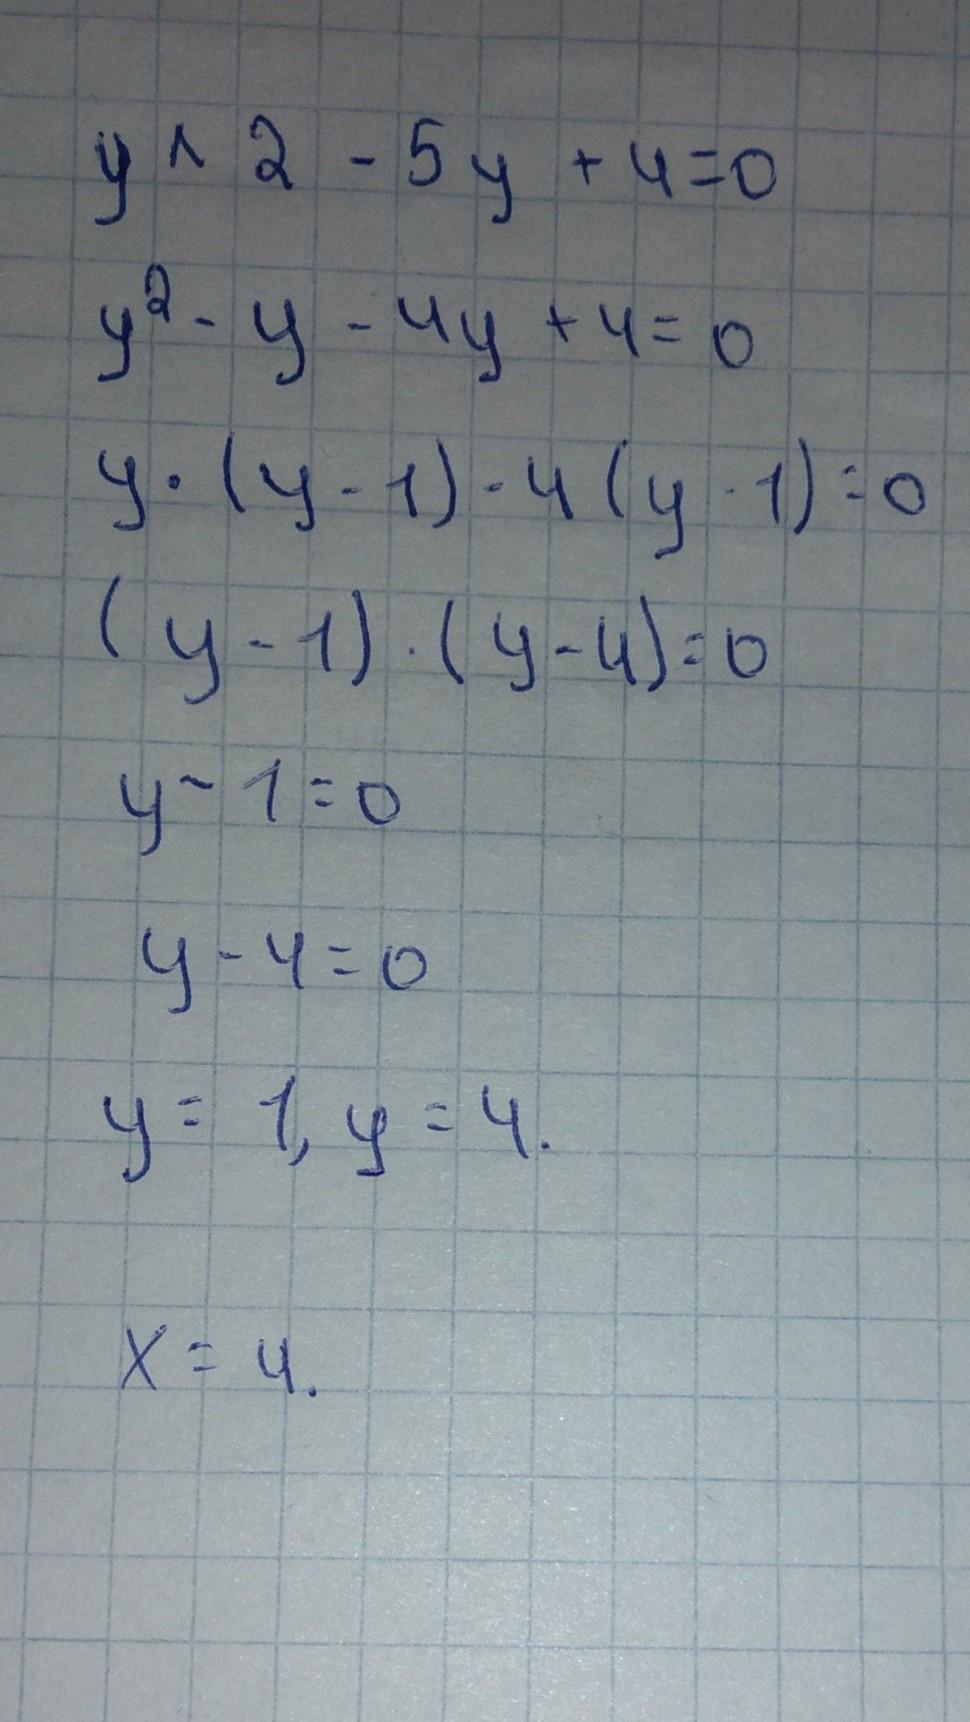 y ^ 2 - 5y + 4 = 0
y² - y - 4y + 4 = 0
y · (y - 1) - 4 (y - 1) = 0
(y - 1) · (y - 4) = 0
y - 1 = 0
y - 4 = 0
y = 1, y = 4.
x = 4.